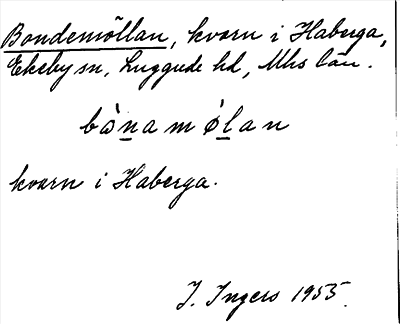 Bondemöllan, kvarn i Haberga,
Ekeby sn, Luggude hd, Mhs län.
bònamǿlan
kvarn i Haberga.
I. Ingers 1955.